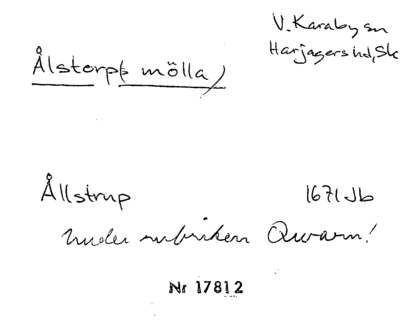 V. Karaby sn
Harjagers hd, Sk
Ålstorps mölla
Ållstrup 1671 Jb
Under rubriken Qwarn!
Nr 17812